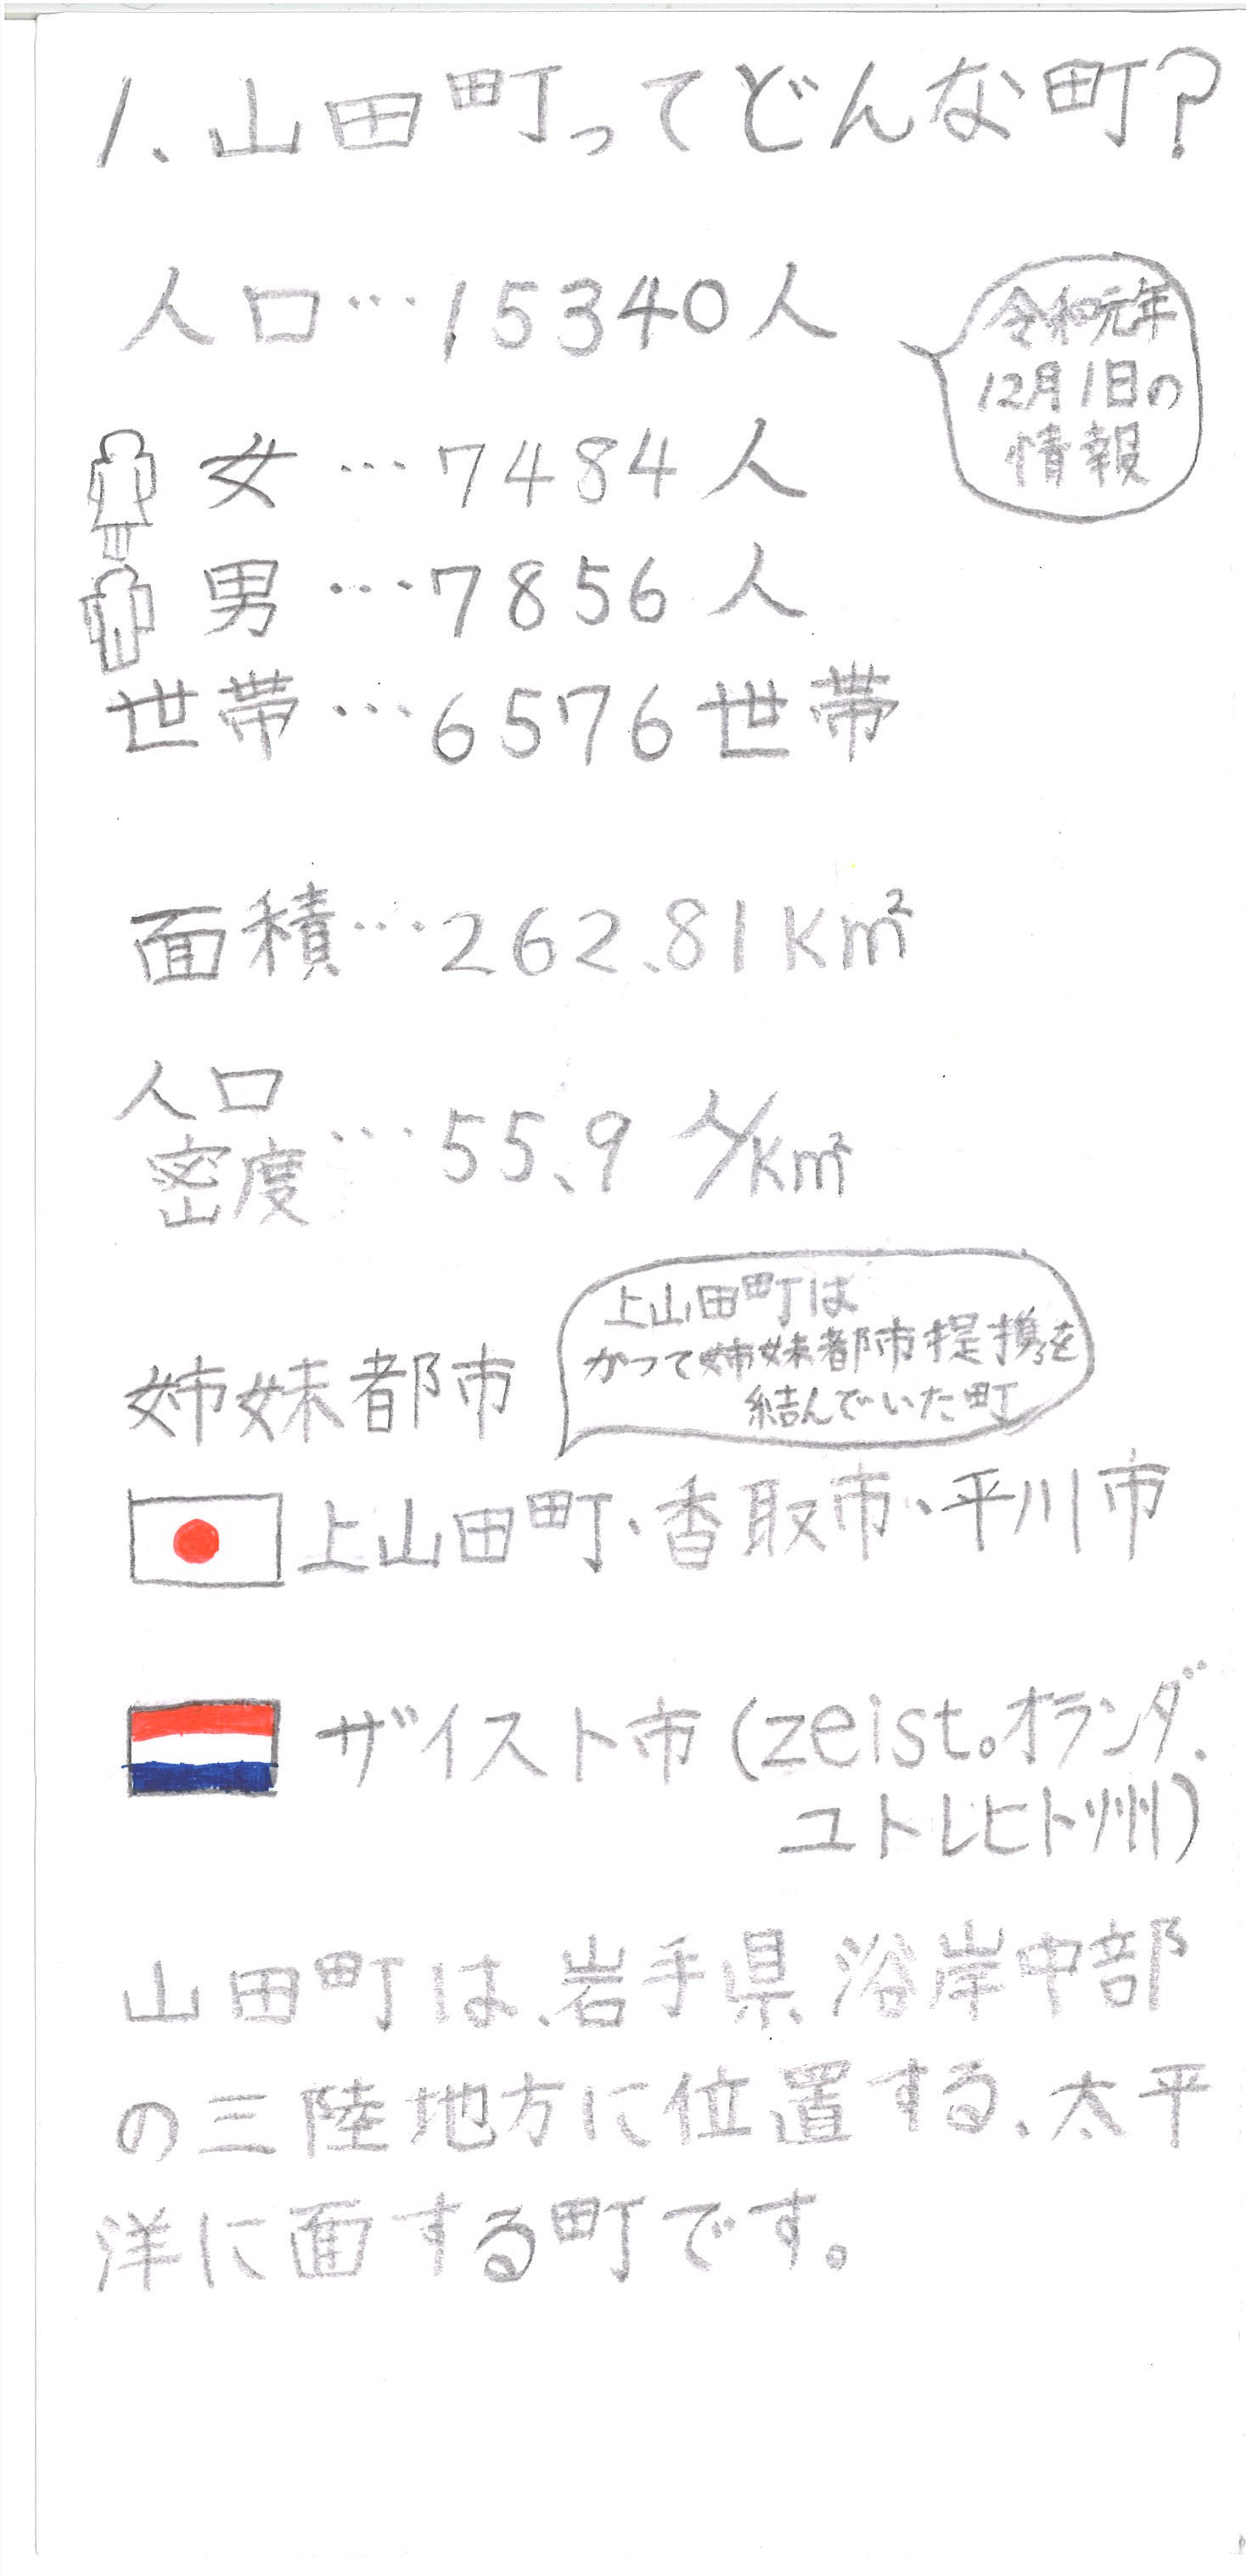 1、山田町ってどんな町?
人口…15340人
令和元年
12月1日の
情報
女…7484人
男…7856人
世帯…6576世帯
面積…262.81Km²
人口
密度…55.9人/Km²
姉妹都市
上山田町は
かつて姉妹都市提携を
結んでいた町
上山田町・香取市・平川市
ザイスト市(zeist。オランダ.
ユトレヒト州)
山田町は、岩手県沿岸中部
の三陸地方に位置する、太平
洋に面する町です。